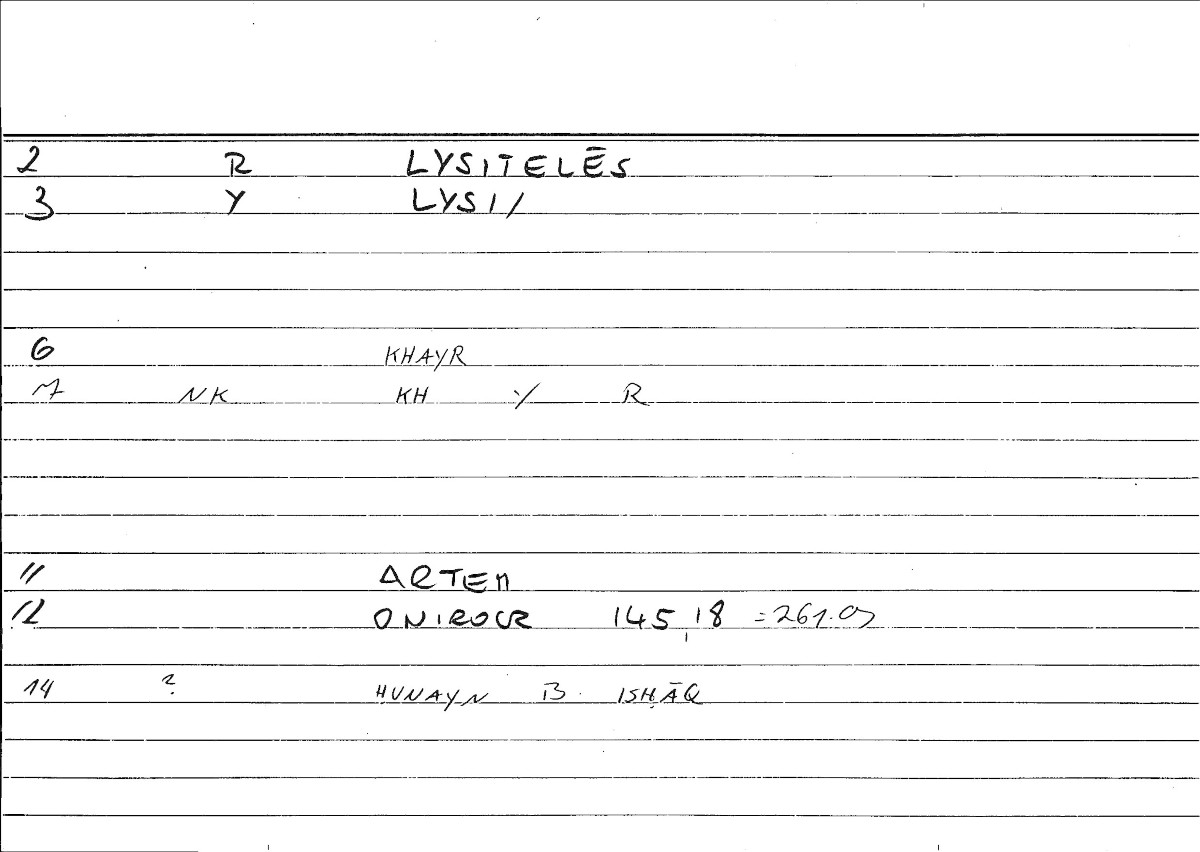 2 R LYSITELĒS
3 Y LYSI/
6 KHAYR
7 NK KH Y R
11 ARTEM
12 ONIROCR 145,18 =261.09
14 ? ḤUNAYN B. ISḤĀQ